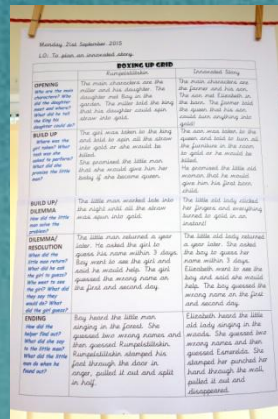 Monday 21st September 2015
LO: To plan an innovated story.
BOXING UP GRID
Rumpelstiltskin
Innovated Story
OPENING
Who are the main
characters? Who
did the daughter
meet and where?
What did he tell
the King his
daughter could do?
The main characters are the
miller and his daughter. The
daughter met Boy in the
garden. The miller told the king
that his daughter could spin
straw into gold.
The main characters are
the farmer and his son.
The son met Elizabeth in
the barn. The farmer told
the queen that his son
could turn anything into
gold!
BUILD UP
Where was the
girl taken? What
task was she
asked to perform?
What did she
promise the little
man?
The girl was taken to the king
and told to spin all the straw
into gold or she would be
killed.
She promised the little man
that she would give him her
baby if she became queen.
The son was taken to the
queen and told to turn all
the furniture in the room
to gold or he would be
killed.
He promised the little old
woman that he would
give him his first born
child.
BUILD UP/
DILEMMA
How did the little
man solve the
problem?
The little man worked late into
the night until all the straw
was spun into gold.
The little old lady clicked
her fingers and everything
turned to gold in an
instant!
DILEMMA/
RESOLUTION
When did the
little man return?
What did he ask
the girl to guess?
Who went to see
the girl? What did
they say they
would do? What
did the girl guess?
The little man returned a year
later. He asked the girl to
guess his name within 3 days.
Boy went to see the girl and
said he would help. The girl
guessed the wrong name on
the first and second day.
The little old lady returned
a year later. She asked
the boy to guess her
name within 3 days.
Elizabeth went to see the
boy and said she would
help. The boy guessed the
wrong name on the first
and second day.
ENDING
How did the
helper find out?
What did she say
to the little man?
What did the little
man do when he
found out?
Boy heard the little man
singing in the forest. She
guessed two wrong names and
then guessed Rumpelstiltskin.
Rumpelstiltskin stamped his
foot through the door in
anger, pulled it out and split
in half.
Elizabeth heard the little
old lady singing in the
woods. She guessed two
wrong names and then
guessed Esmerelda. She
stamped her punched her
hand through the wall,
pulled it out and
disappeared.